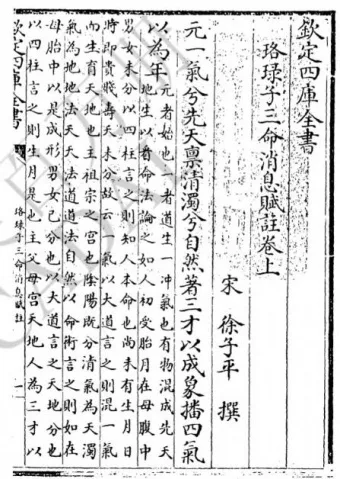 欽定四庫全書
珞琭子三命消息賦註卷上
宋 徐子平 撰
元一氣兮先天稟清濁兮自然著三才以成象播四氣
以為年
元者始也一者道生一冲氣也有物混成先天
地生以看命法論之如人初受胎月在母腹中
男女未分以四柱言之則知人本命也尚未有生月日
時即貴賤壽夭未分故云一氣以大道言之則混一氣
而生育天地也主祖宗之宮也陰陽既分清氣為天濁
氣為地地法天天法道道法自然以命術言之則如在
母胎中以是成形男女已分也以大道言之天地分也
以四柱言之則生月是也主父母宮天地人為三才以
欽定四庫全書
珞琭子三命消息賦註
一